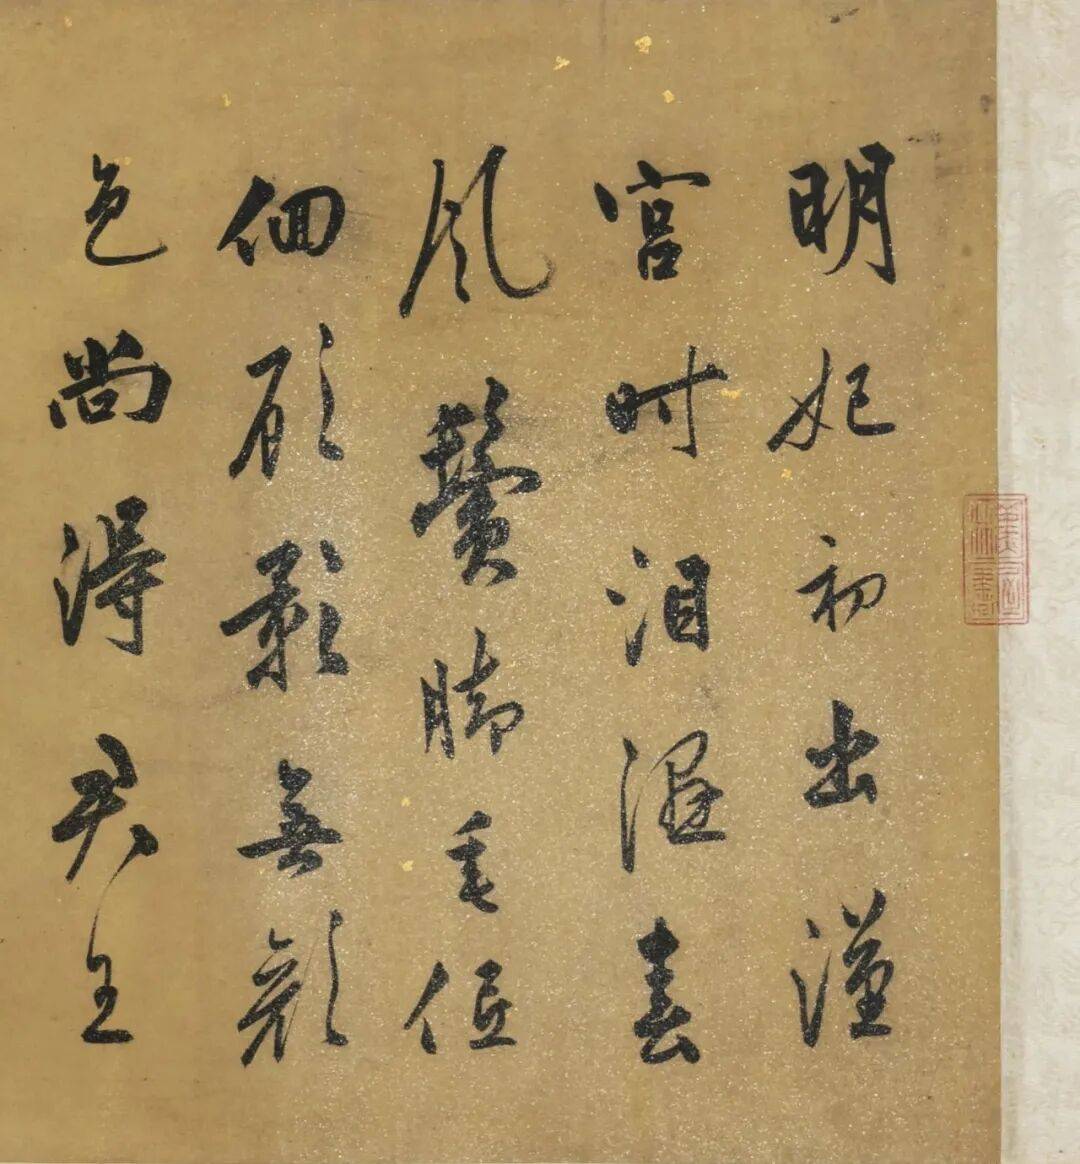 明妃初出漢
宮时泪濕春
風鬢脚垂低
佪顧影無顔
色尚得君王